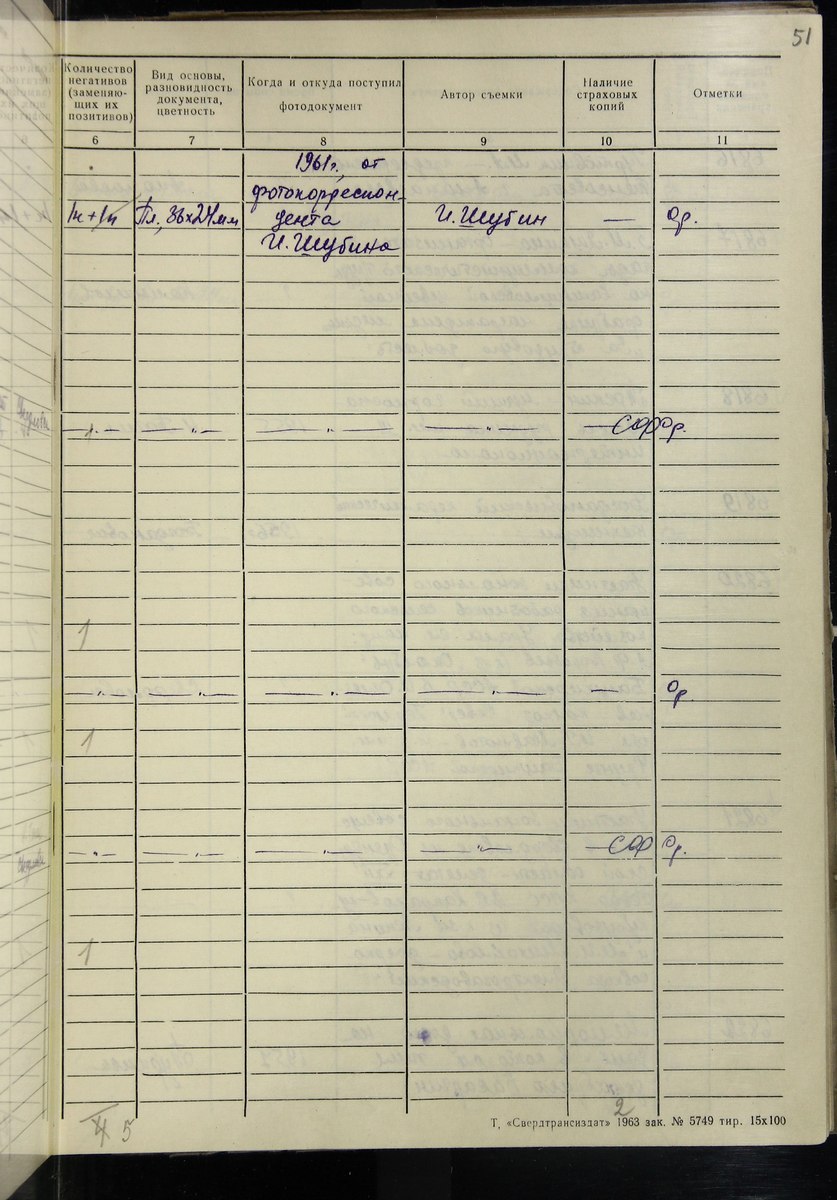 51
Количество негативов (заменяю-щих их позитивов)
Вид основы, разновидность документа, цветность
Когда и откуда поступил фотодокумент
Автор съемки
Наличие страховых копий
Отметки
6 7 8 9 10 11
1961 г. от
фотокорреспон-
1н+1п Пл, 36х24мм дента И. Шубин — Ор.
И. Шубина
— „ — — „ — — „ — — „ — СФФ Ор.
1
— „ — — „ — — „ — — „ — — Ор.
1
— „ — — „ — — „ — — „ — СФФ Ор.
1
2
5
Т, «Свердтрансиздат» 1963 зак. № 5749 тир. 15х100